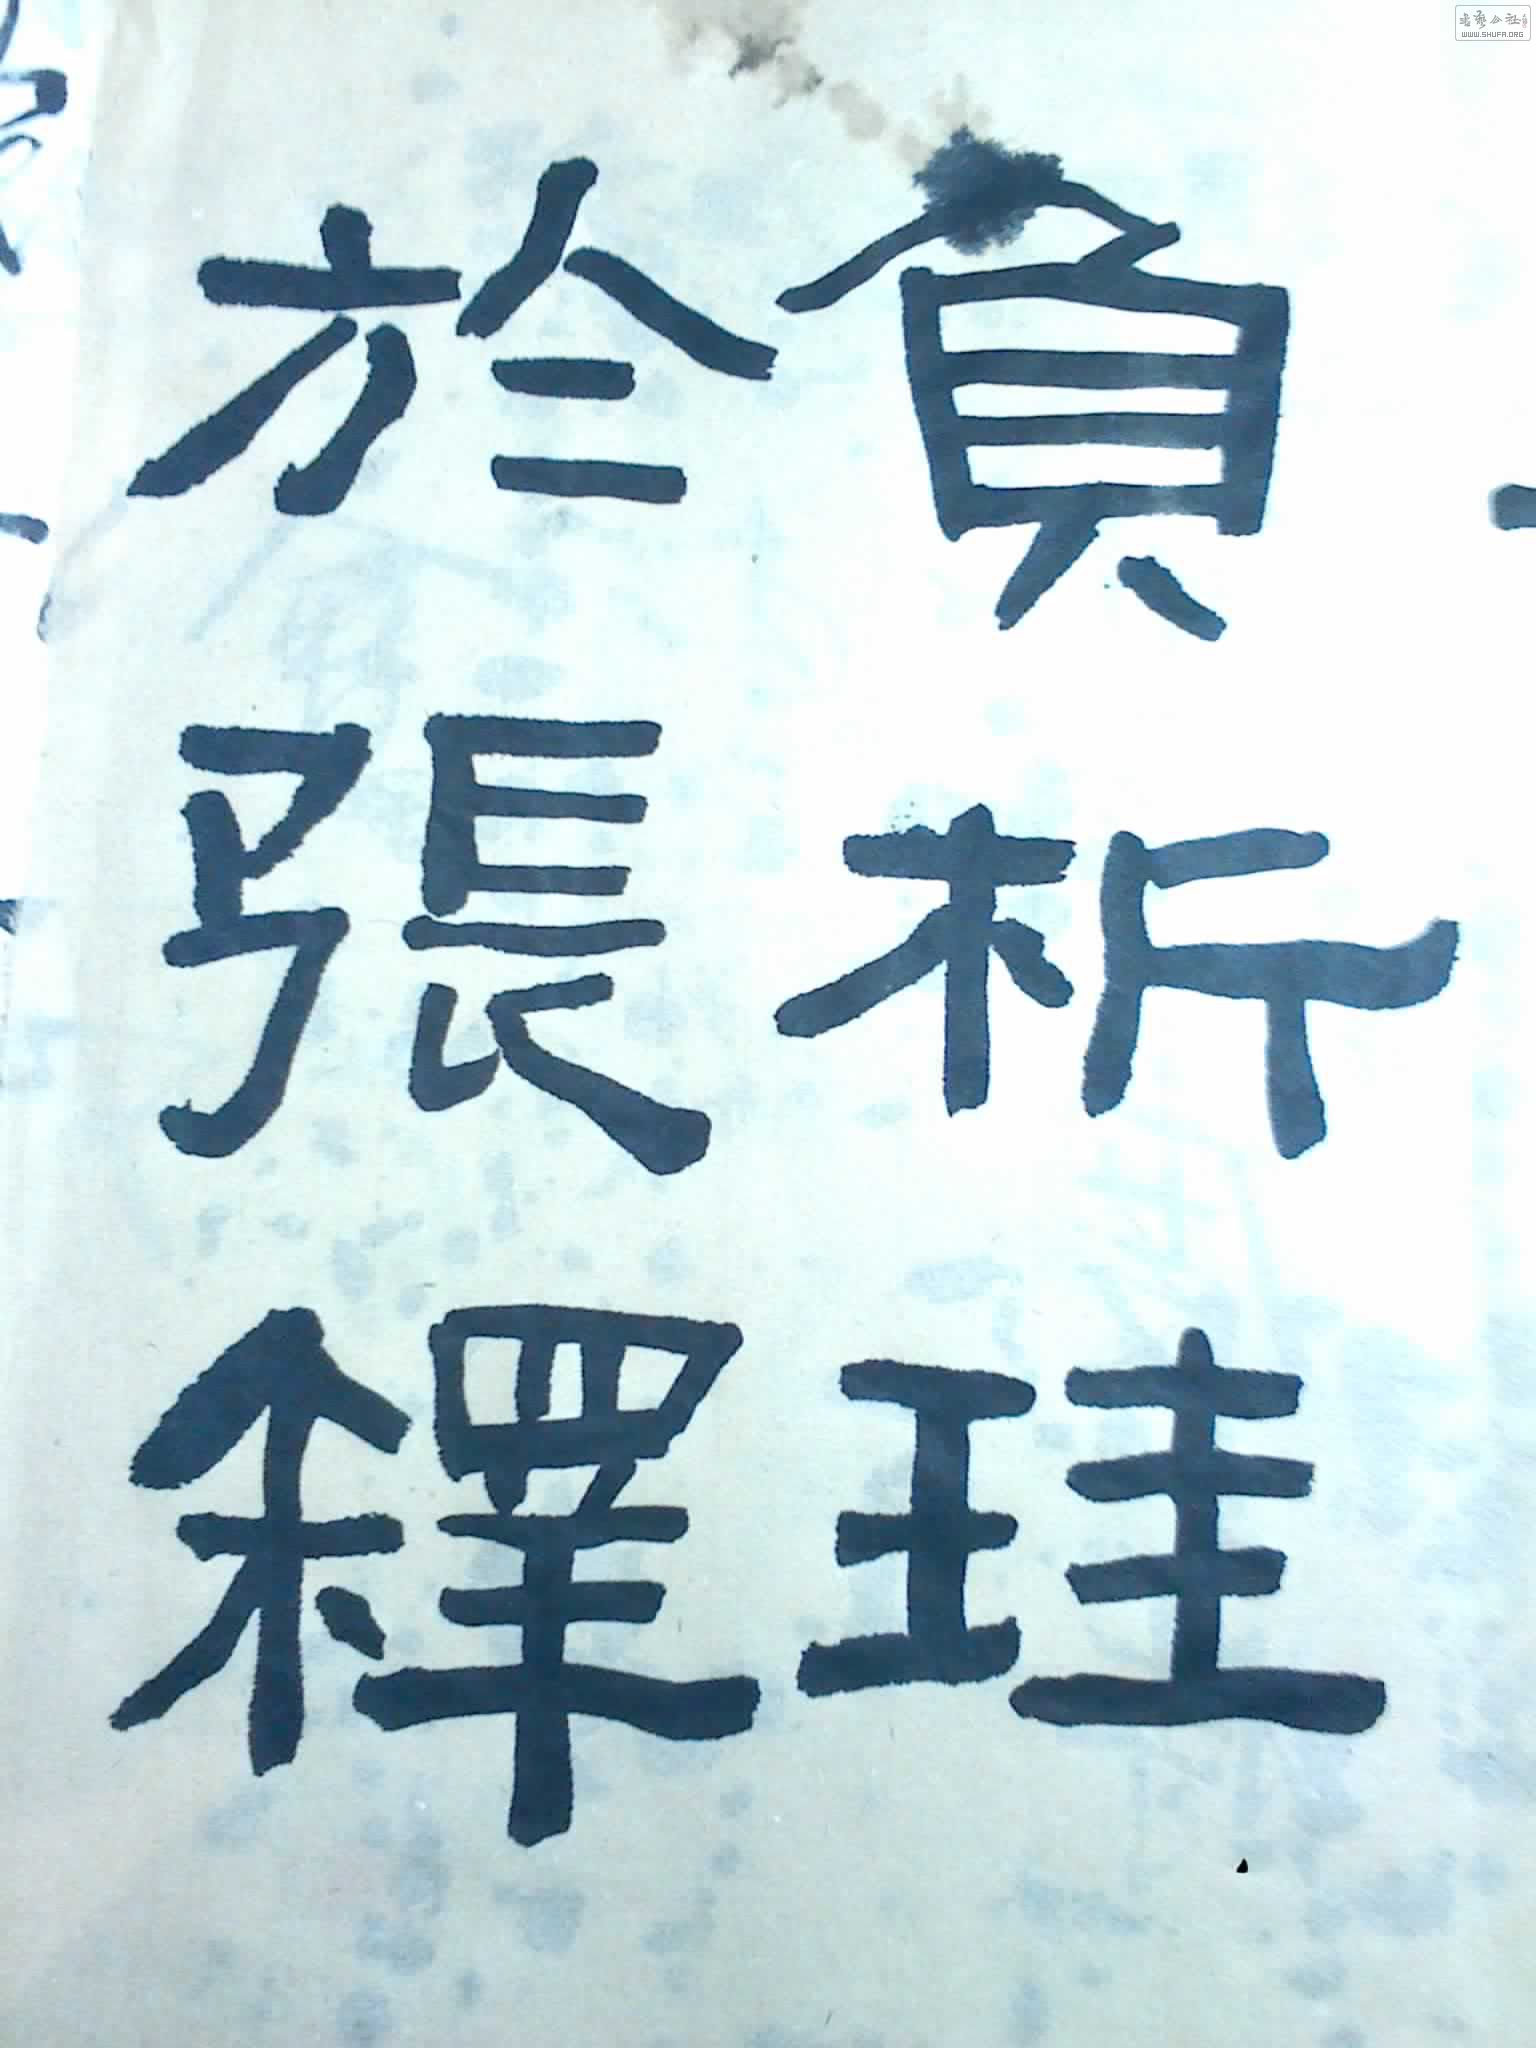 負析珪
於張釋
WWW.SHUFA.ORG